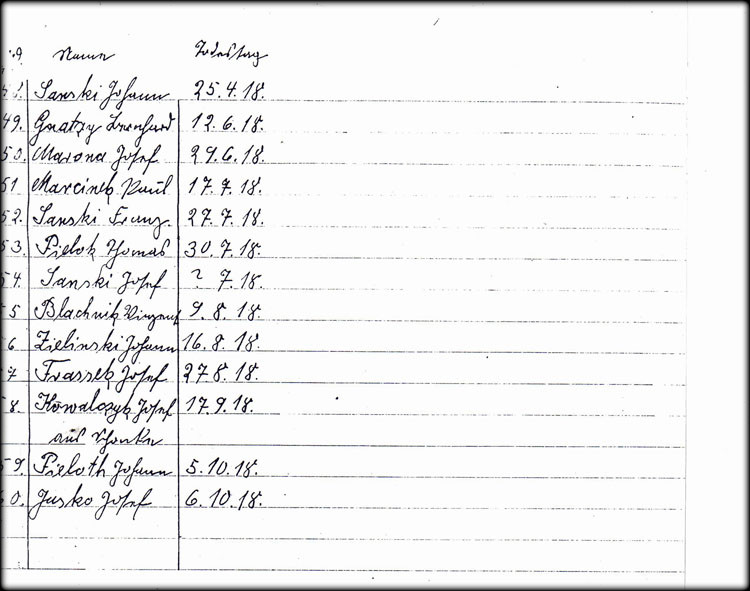 Namen Todestag
48. Sanski Johann 25.4.18.
49. Gnatzy Bernhard 12.6.18.
50. Marona Josef 29.6.18.
51 Marcinek Paul 17.7.18.
52. Sanski Franz. 27.7.18.
53. Pielok Thomas 30.7.18.
54. Sanski Josef ? 7.18.
5 Blachnik Vinzent 9.8.18.
6 Zielinski Johann 16.8.18.
7 Frassek Josef 27.8.18.
8. Kowalczyk Josef 17.9.18.
aus
59. Pieloth Johann 5.10.18.
60. Jusko Josef 6.10.18.